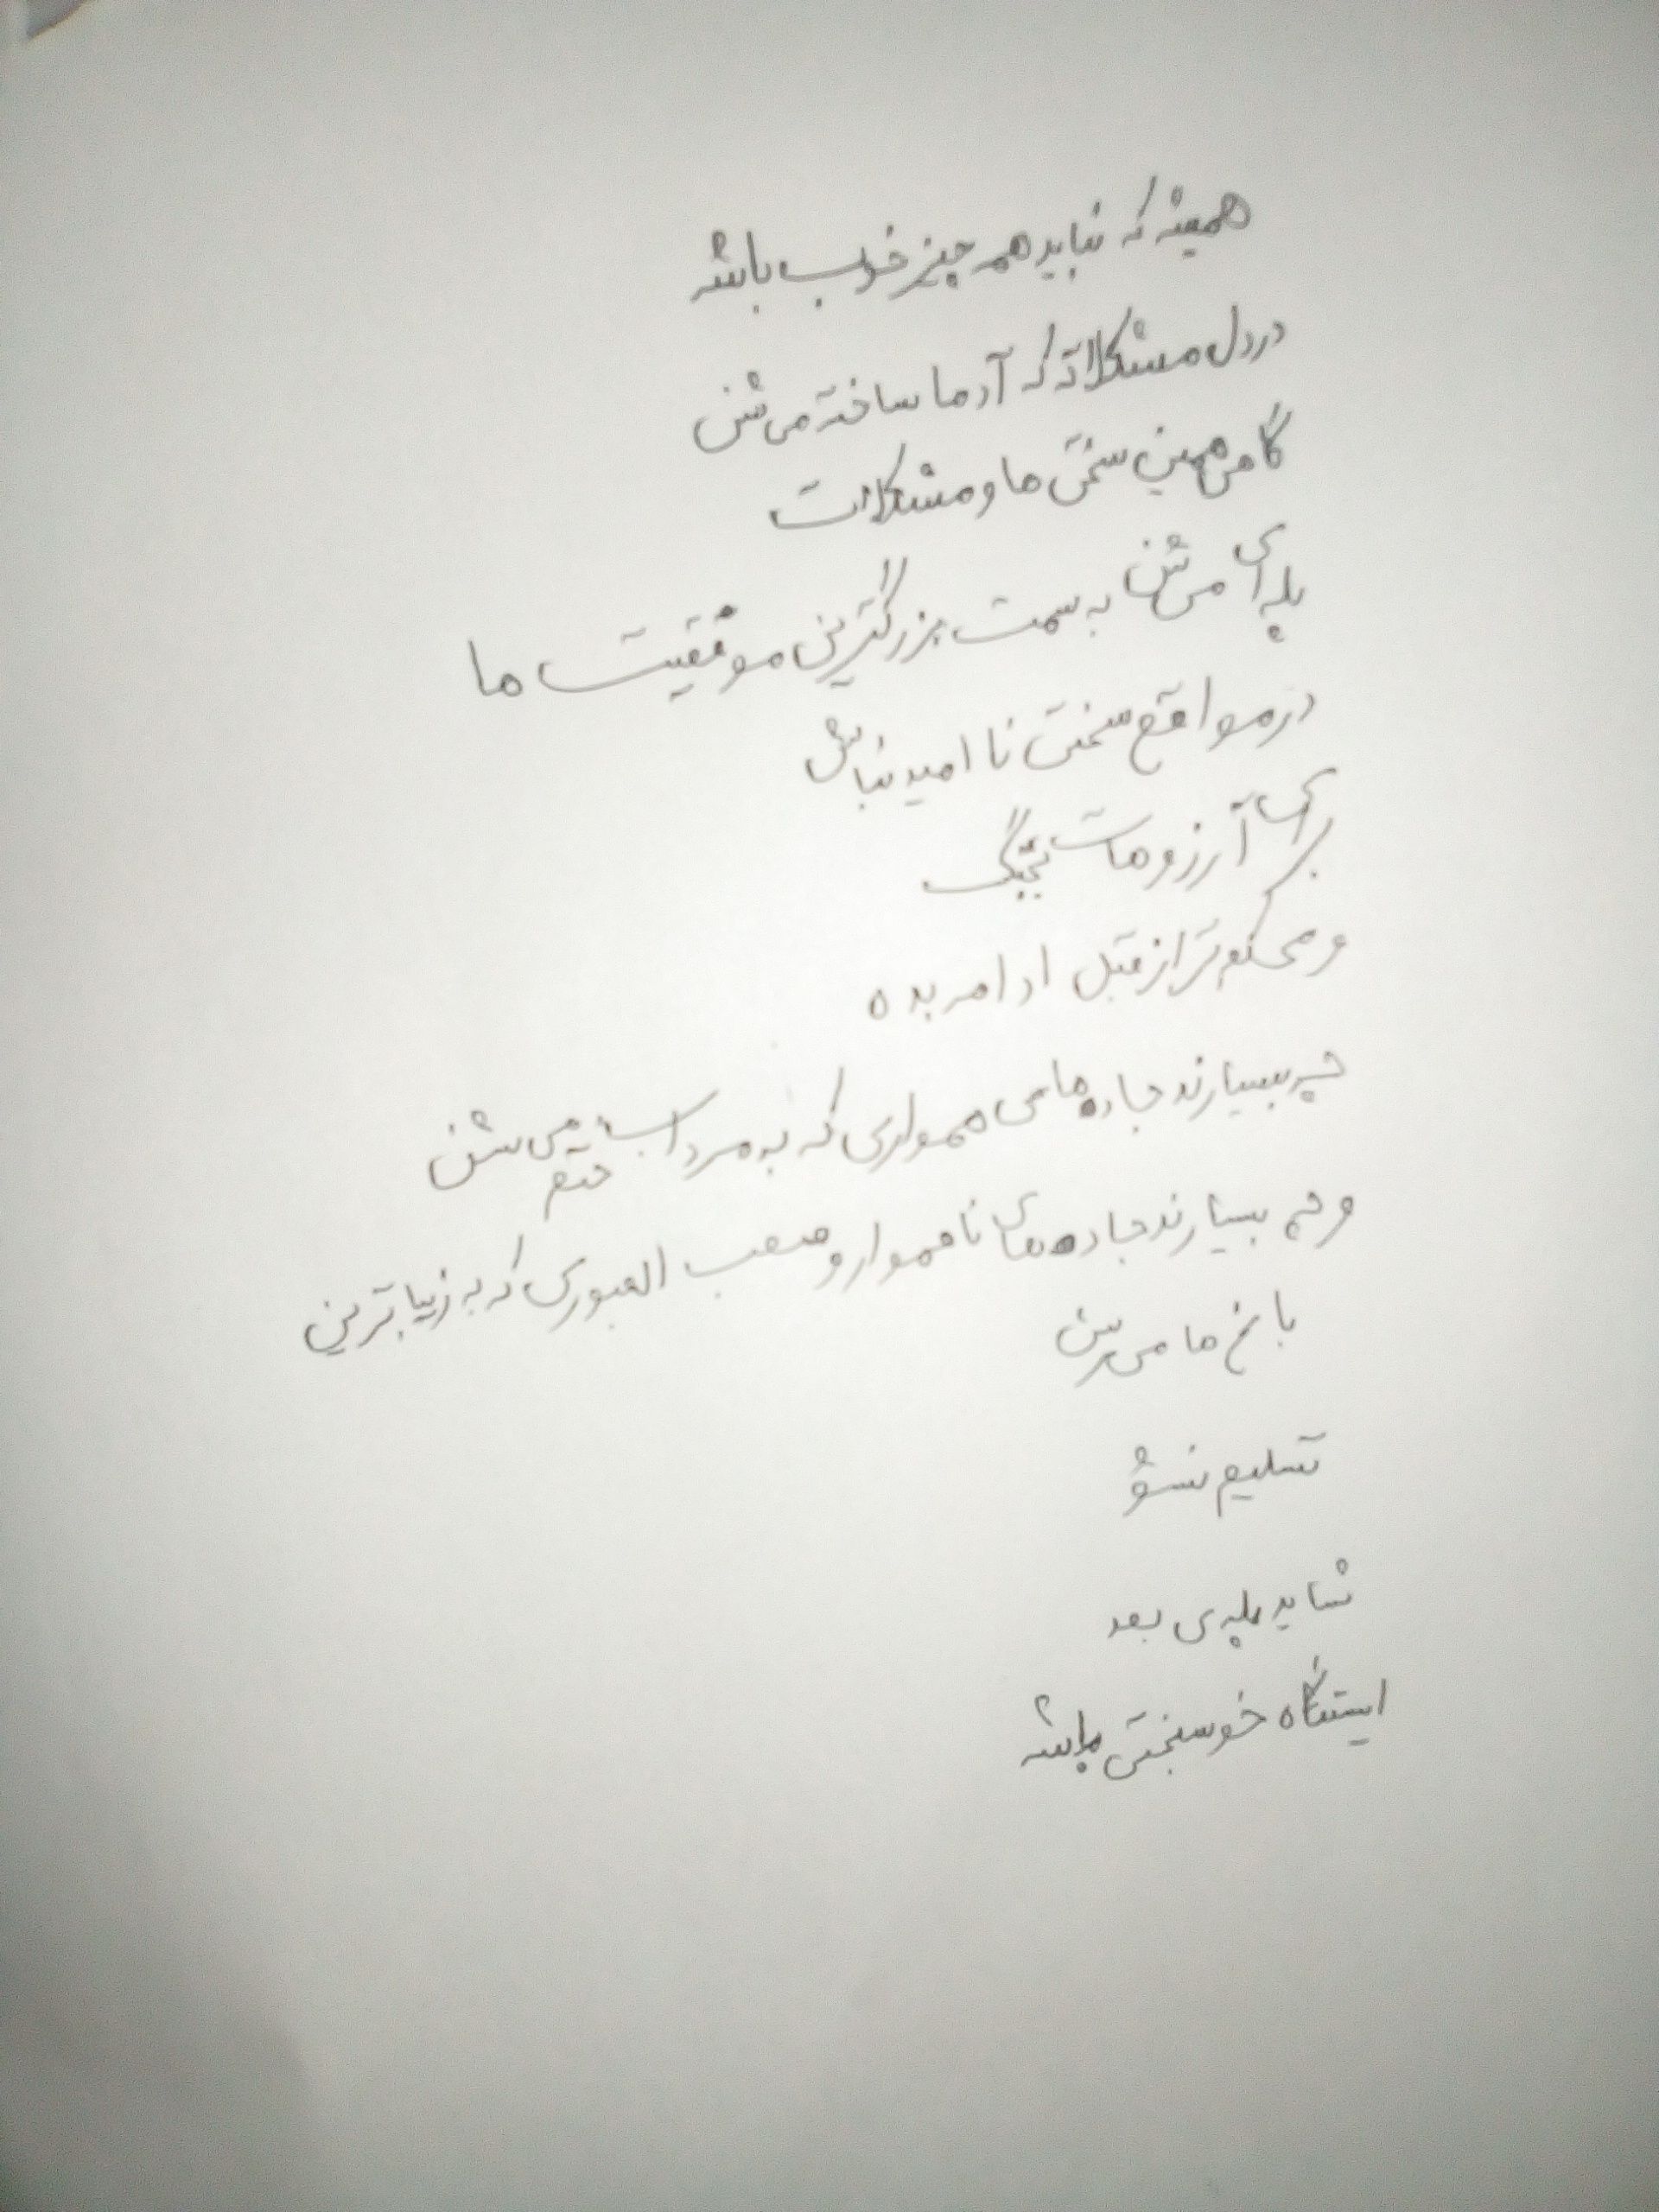 همیشه که نباید همه چیز خوب باشه
در دل مشکلاته که آدما ساخته می شن
گاهی همین سختی ها و مشکلات
پله ای می شن به سمت بزرگترین موفقیت ها
در مواقع سختی نا امید نباش
برای آرزوهات بجنگ
و محکم تر از قبل ادامه بده
چه بسیارند جاده های همواری که به مرداب ختم می شن
و چه بسیارند جاده های ناهموار و صعب العبوری که به زیباترین
باغ ها می رسن
تسلیم نشو
شاید پله ی بعد
ایستگاه خوشبختی باشه